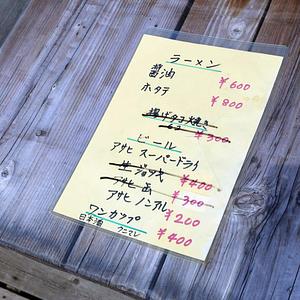 ラーメン
醤油 ¥600
ホタテ ¥800
揚げタコ焼き
¥300
ビール
アサヒ スーパードライ
生ジョッキ ¥400
アサヒ 缶 ¥300
アサヒ ノンアル ¥200
ワンカップ
日本酒 ¥400